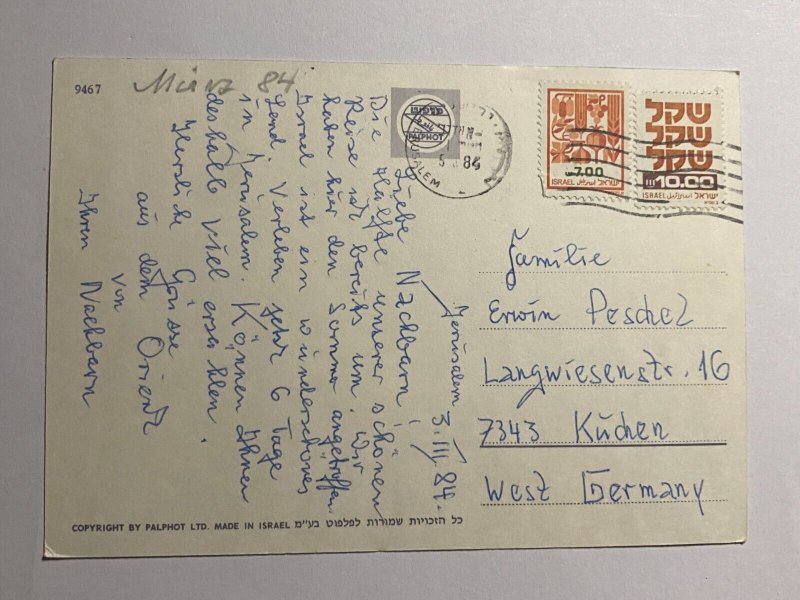 9467
März 84
פלפוט
PALPHOT
JERUSALEM
5 84
7.00
ISRAEL اسرائيل ישראל
שקל
שקל
שקל
10.00
ISRAEL اسرائيل ישראל
Jerusalem 3.III.84.
Liebe Nachbarn!
Die Hälfte unserer schönen
Reise ist bereits um. Wir
haben hier den Sommer angetroffen.
Israel ist ein wunderschönes
Land. Verleben jetzt 6 Tage
in Jerusalem. Können Ihnen
deshalb viel erzählen.
Herzliche Grüsse
aus dem Orient
von
Ihren Nachbarn
Familie
Erwin Peschel
Langwiesenstr. 16
7343 Kuchen
West Germany
COPYRIGHT BY PALPHOT LTD. MADE IN ISRAEL כל הזכויות שמורות לפלפוט בע"מ